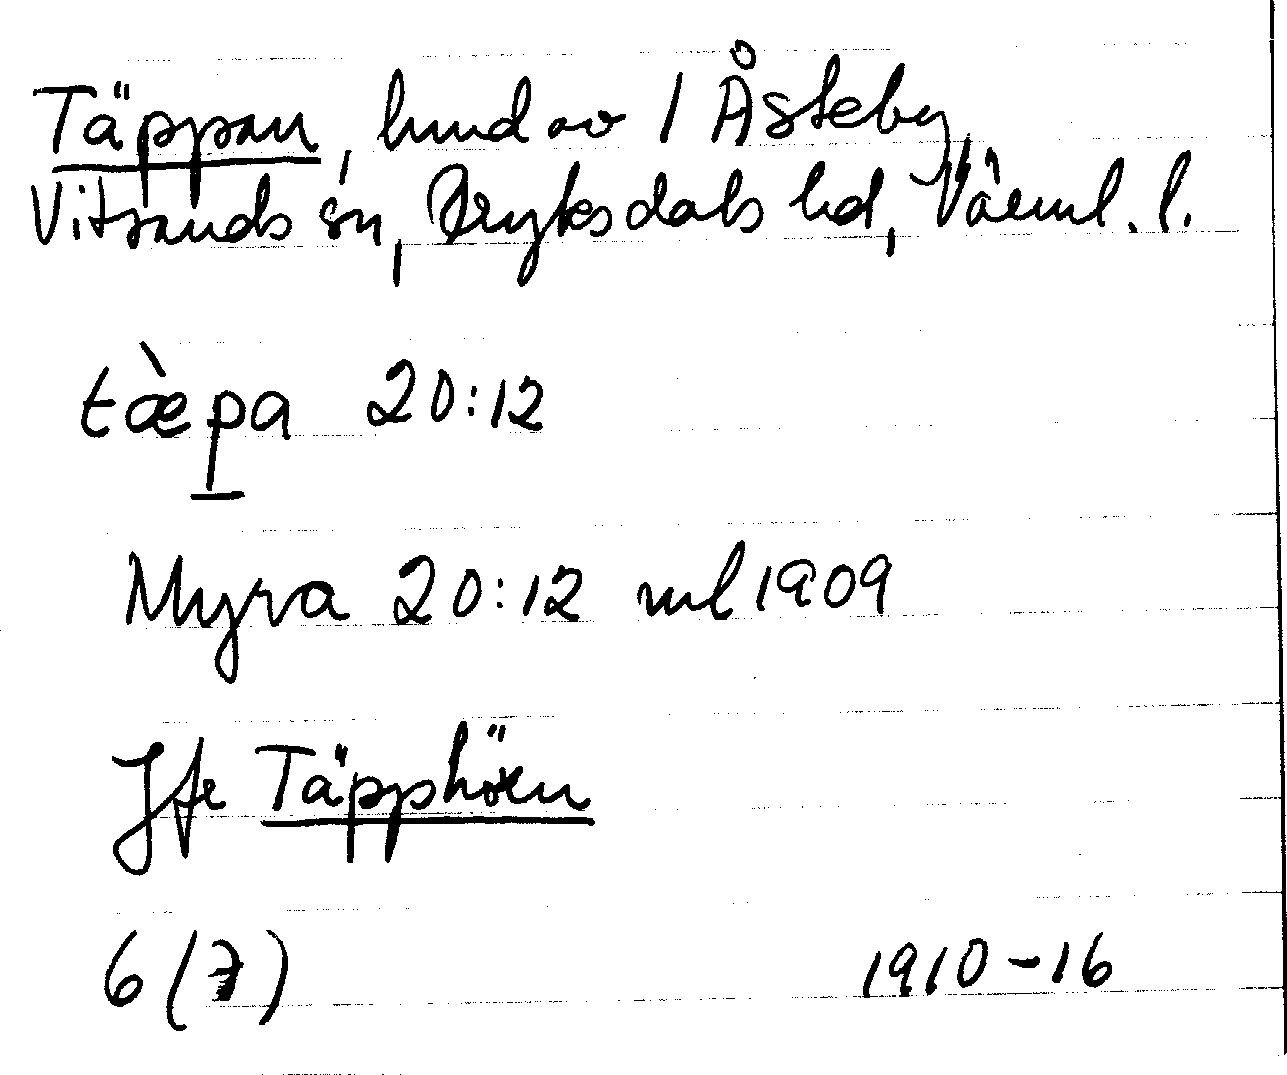 Täppan, hmd av 1 Åsteby,
Vitsands sn, Fryksdals hd, Värml. l.
tæ̀pa 20:12
Myra 20:12 ml 1909
Jfr Täpphöen
6 (7) 1910-16